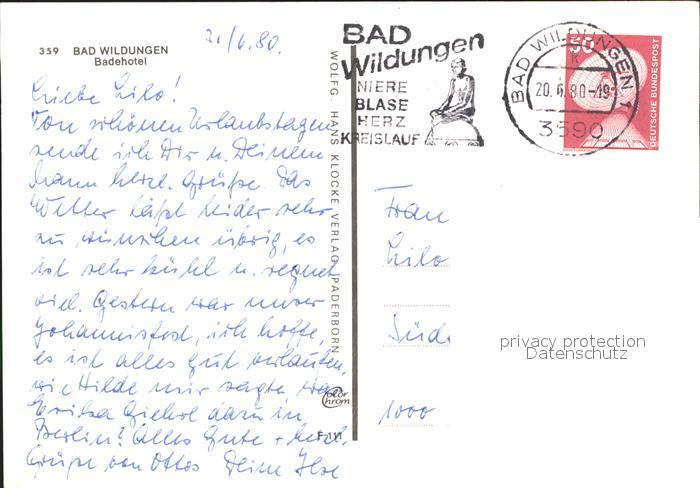 359 BAD WILDUNGEN
Badehotel
21/6.80.
Liebe Lilo!
Von schönen Urlaubstagen
sende ich Dir u. Deinem
Mann herzl. Grüße. Das
Wetter läßt leider sehr
zu wünschen übrig, es
ist sehr kühl u. regnet
viel. Gestern war unser
Johannisfest, ich hoffe,
es ist alles gut verlaufen,
wie Hilde mir sagte war
Erika Giehrl dazu in
Berlin? Alles Gute + herzl.
Grüße von Ottos Deine Ilse
WOLFG. HANS KLOCKE VERLAG, PADERBORN
Color
chrom
BAD
Wildungen
NIERE
BLASE
HERZ
KREISLAUF
BAD WILDUNGEN 1
k
20.6.80-19
3590
50
DEUTSCHE BUNDESPOST
Frau
Lilo
Süd
1000
privacy protection
Datenschutz